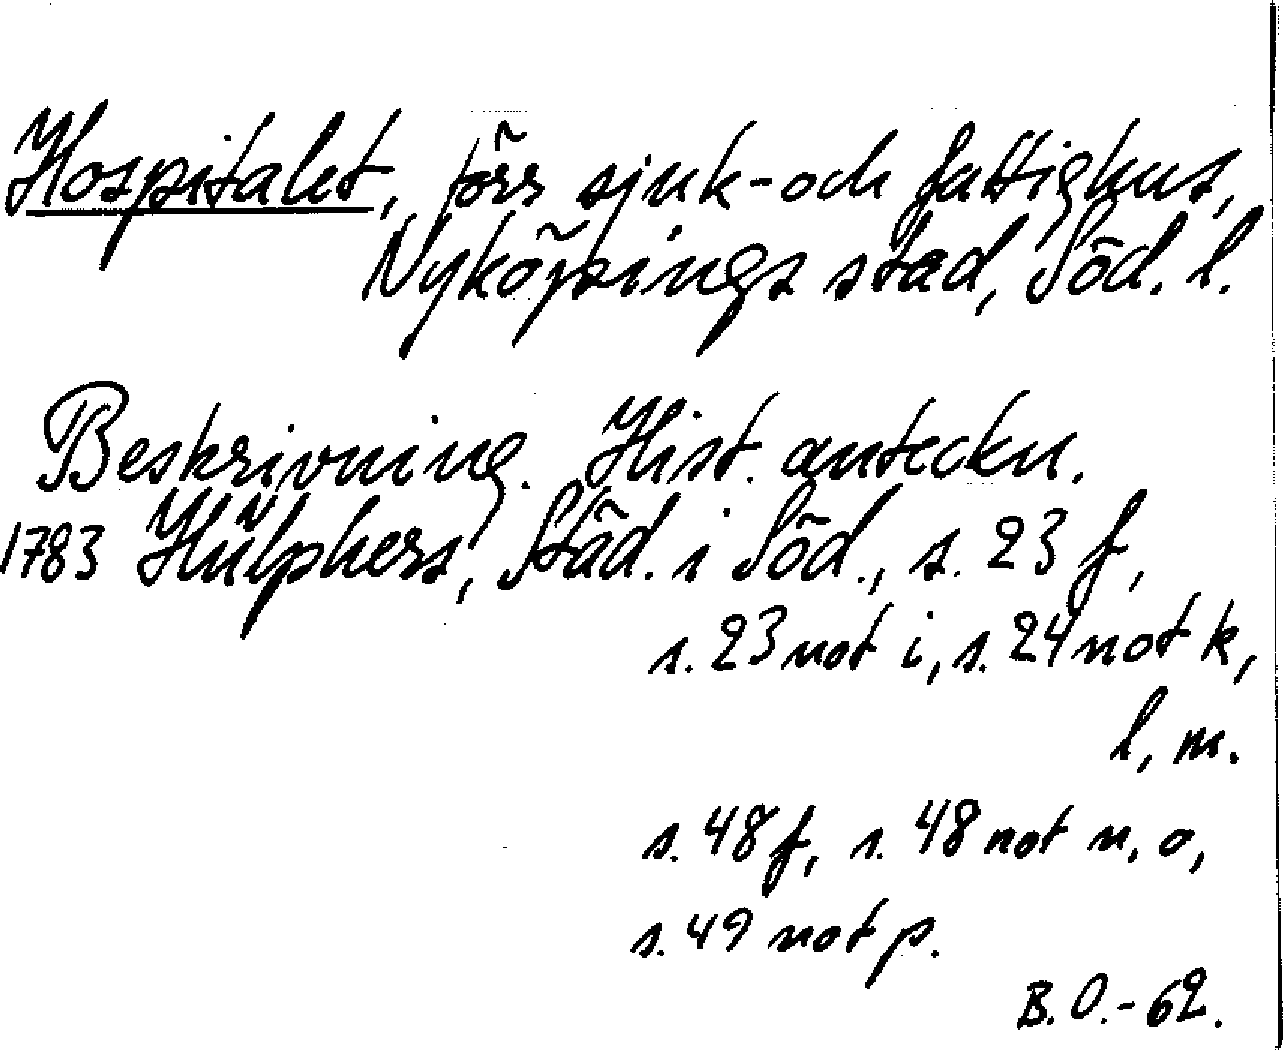 Hospitalet, förr sjuk- och fattighus,
Nyköpings stad, Söd. l.
Beskrivning. Hist. anteckn.
1783 Hülphers, Städ. i Söd., s. 23 f,
s. 23 not i, s. 24 not k,
l, m.
s. 48 f, s. 48 not n, o,
s. 49 not p.
B.O.-62.